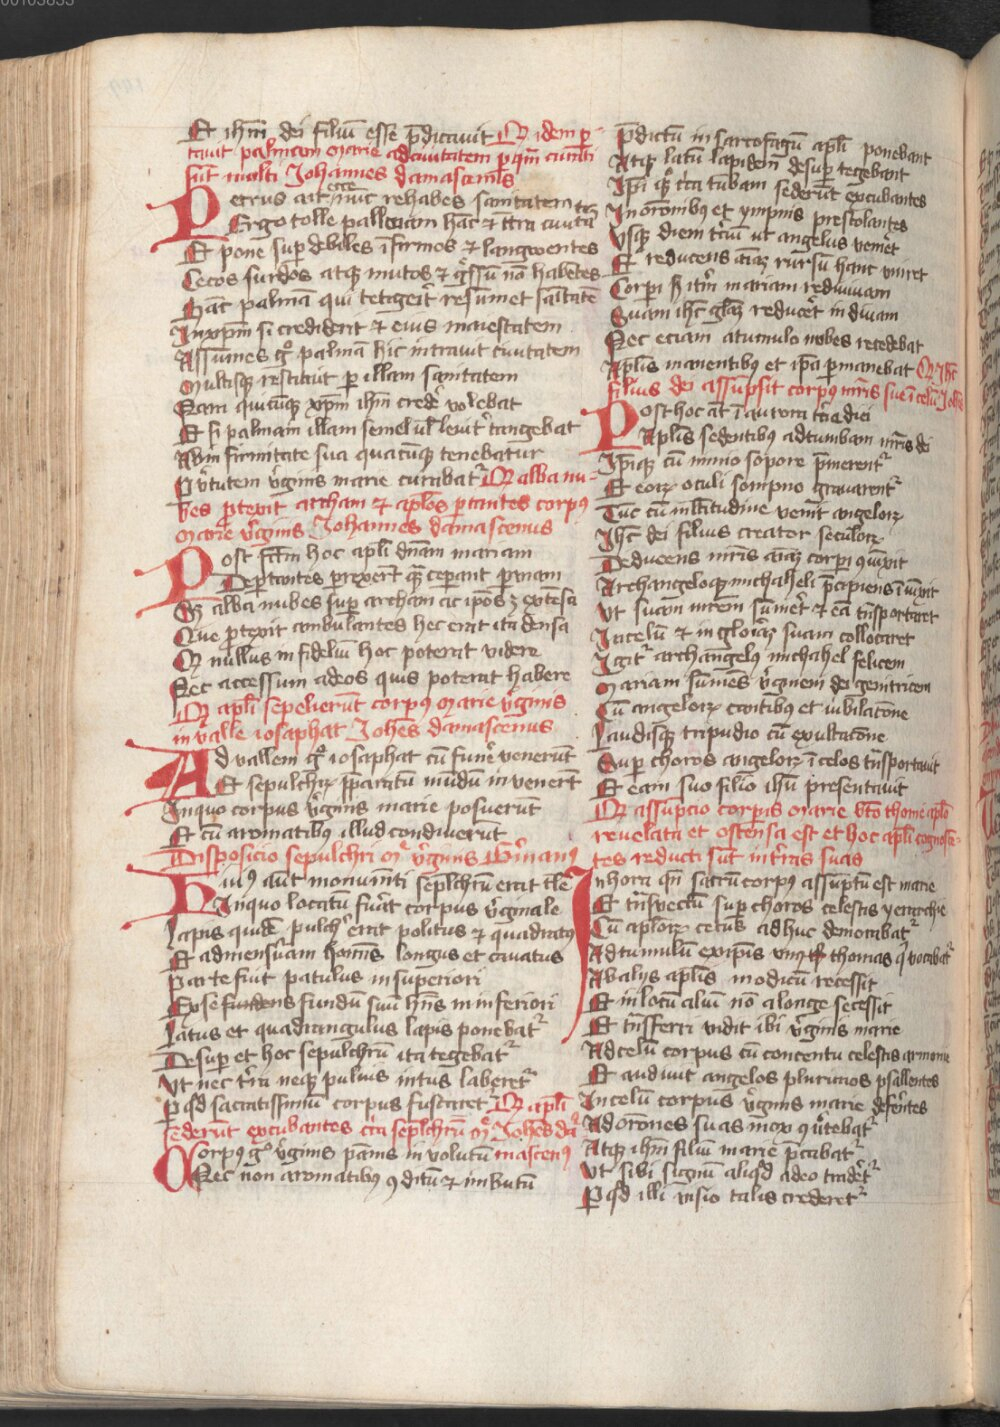 00103855
Et ihm̄ dei filiū esse p̄dicauit Qɿ idem per-
tauit palmam marie ad ciuitatem p quā curati
sūt multi Johannes damascenus
Petrus ait ecce nūc rehabes sanitatem
Ergo tolle palmam hāc et intra ciuitatē
Et pone sup debiles īfirmos et langwentes
Cecos surdos atqꝫ mutos et gressū nō habētes
Hāc palmā qui tetigerit resumet sanitatē
In xpm̄ si credidit et eius maiestatem
Assumēs gͦ palmā hic intrauit ciuitatem
Multisqꝫ restituit p illam sanitatem
Nam quicūqꝫ xpm̄ ihm̄ credē volebat
Et si palmam illam semel ul leuit tangebat
Ab infirmitate sua quacūqꝫ tenebatur
P v̄tutem v̄ginis marie curabat Qɿ alba nu-
bes ptexit archam et aplōs portantes corpꝰ
marie v̄ginis Johannes damascenus
Post fc̄m hoc apli dn̄am mariam
Deportantes
Qɿ alba nubes sup archam ac ip̄os ꝫ extesa
Que ptexit ambulantes hec erat ita densa
Qɿ nullus infideliū hoc poterat videre
Nec accessum ad eos quis poterat habere
Qɿ apli sepelierūt corpꝰ marie v̄ginis
in valle iosaphat Johēs damascenus
Ad vallem gͦ iosaphat cū funē venerūt
Et sepulchrꝫ p̄paratū mūdū invenerūt
In quo corpus v̄ginis marie posuerūt
Et cū aromatibꝰ illud condiuerūt
Disposicio sepulchri mͥ v̄ginis Germanꝰ
Huiꝰ aūt monumēti seplchrū erat tale
In quo locatū fuit corpus v̄ginale
Lapis quidē pulchē erat politus et quadratꝰ
Et ad mensuram hominis longus et cauatus
Parte fuit patulus in superiori
Et se fundens fundū suū hn̄s in inferiori
Latus et quadrangulus lapis ponebatᷣ
Desup et hoc sepulchrū ita tegebatᷣ
Vt nec tr̄a neqꝫ puluis intus laberetᷣ
P qd sacratissimū corpus fuscaretᷣ Qɿ apli
sederūt excubantes circa seplchrū mͥ Johēs da-
Corpꝰ gͦ v̄ginis pānis in volutū mascenꝰ
Nec non aromatibꝰ ꝯditū et imbutū
p̄dictū in sarcofagū apli ponebant
Atqꝫ latū lapidem desup tegebant
Ip̄i qꝫ circa tūbam sederūt excubantes
In oronibꝰ et ympnis prestolantes
Vsqꝫ diem tciū ut angelus veniet
Et reducens aīaꝫ rursū hanc vniret
Corpi et itm̄ mariam rediuiuam
Suam ihc̄ glaꝫ reducet in diuam
Nec eciam a tumulo nubes recedebat
Aplis manentibꝰ et ip̄a pmanebat Qɿ ihc̄
filius dei assupsit corpꝰ mr̄is sue ī celū Johēs
Post hoc at ī aurora tercia diei
Aplis sedentibꝰ ad tumbam mr̄is dei
Ip̄iqꝫ cū nimio sopore p̄merentᷣ
Et eoꝝ oculi sompno grauarentᷣ
Tūc cū multitudine venit angeloꝝ
Ihc̄ dei filius creator seculoꝝ
Deducens mr̄is aīaꝫ corpi ꝯiūxit
Archangeloqꝫ michaheli p̄cipiens iniūxit
Vt suam mr̄em sumēt et eā tn̄sportaret
In celū et in gloriaꝫ suam collocaret
Igitᷣ archangelꝰ michahel felicem
Mariam sumēs v̄ginem dei genitricem
Cū angeloꝝ cantibꝰ et iubilacōne
Laudisqꝫ tripudio cū exultacōne
Sup choros angeloꝝ ī celos tn̄sportauit
Et eam suo filio ihū presentauit
Qɿ assumpcio corpis marie bt̄o thome aplo
reuelata et ostensa est et hoc apli cognoscē-
tes reducti sūt in tr̄as suas
In hora qn̄ sacrū corpꝰ assuptū est marie
Et tn̄svectū sup choros celestis yerarchie
Cū aploꝝ cetus ad huc demorabatᷣ
Ad tumulū ex ip̄is vnꝰ thomas qͥ vocabatᷣ
Ab alys aplis modicū recessit
Et in locū aliū nō a longe secessit
Et tn̄sferri vidit ibi v̄ginis marie
Ad celū corpus cū concentu celestis armonie
Et audiuit angelos plurimos psallentes
In celū corpus v̄ginis marie deferētes
Ad orōnes suas mox qͥetabatᷣ
Atqꝫ ihm̄ filiū marie p̄cabatᷣ
Vt sibi signū aliqd a deo tradētᷣ
P qd illi visio talis crederetᷣ